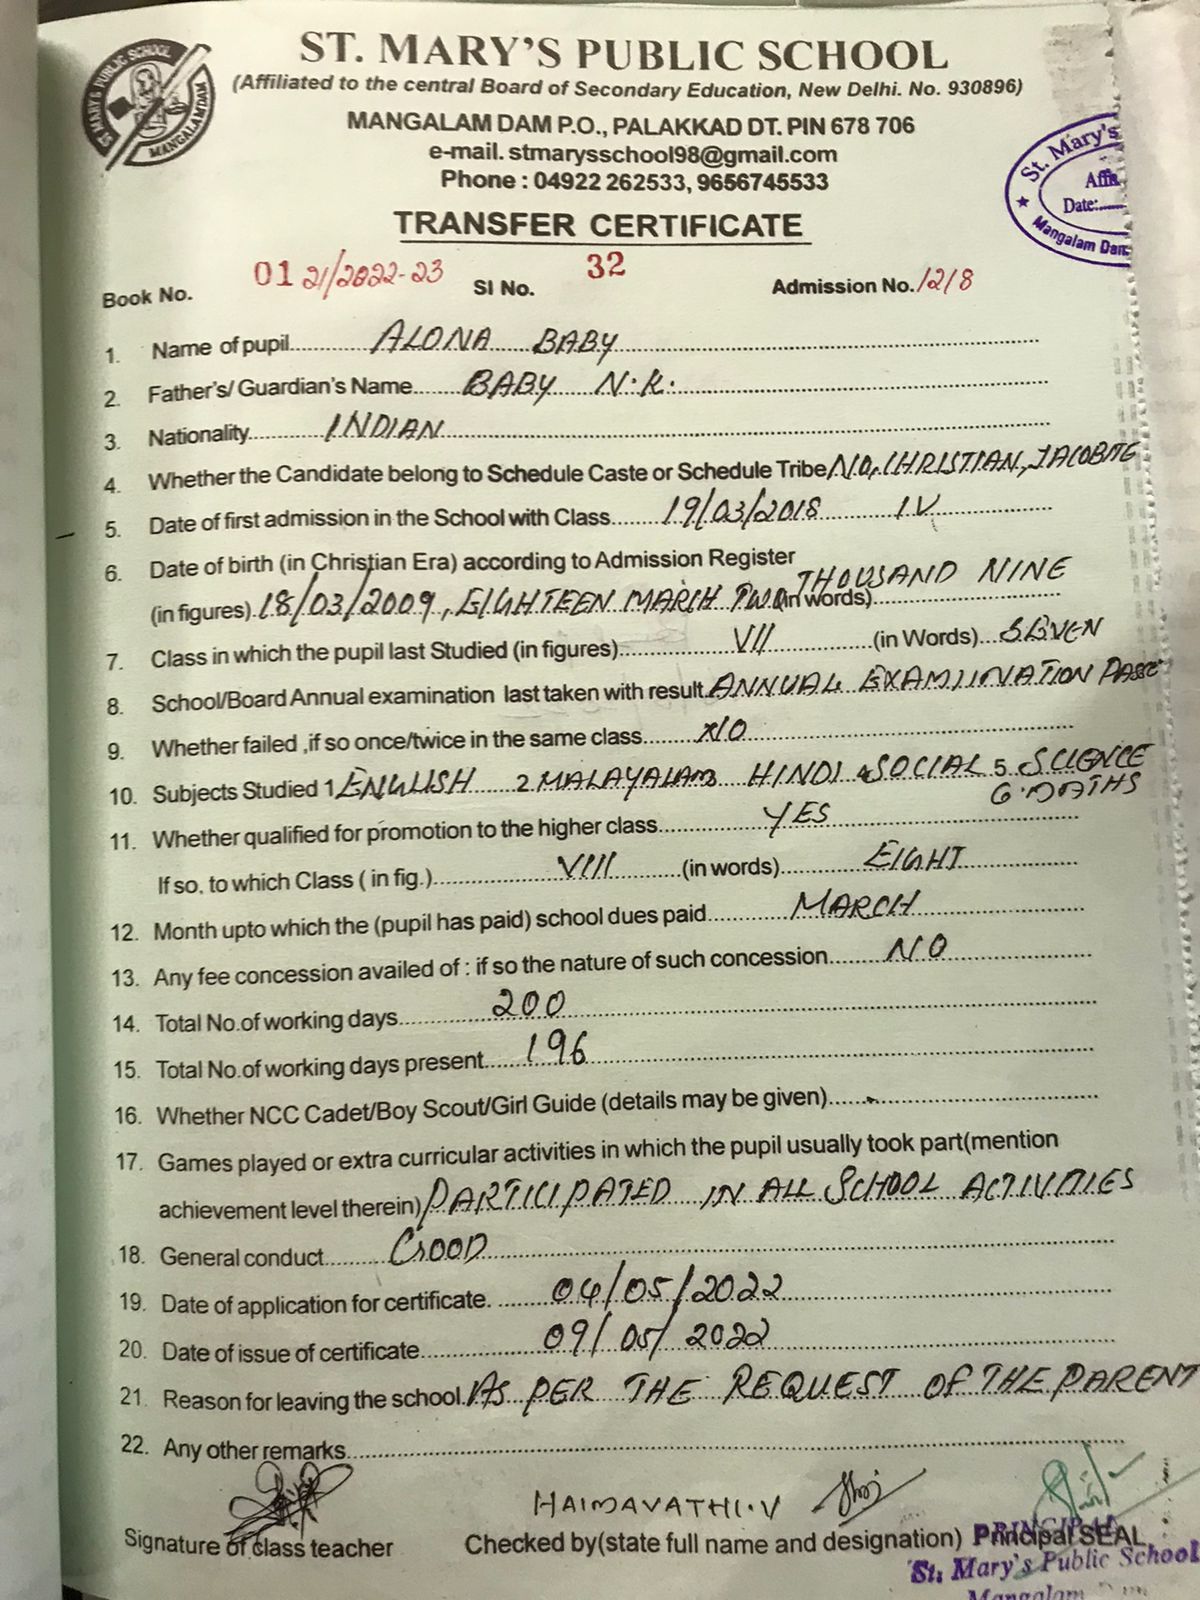 ST. MARY'S PUBLIC SCHOOL
(Affiliated to the central Board of Secondary Education, New Delhi. No. 930896)
MANGALAM DAM P.O., PALAKKAD DT. PIN 678 706
e-mail. stmarysschool98@gmail.com
Phone : 04922 262533, 9656745533
ST. MARY'S PUBLIC SCHOOL
MANGALAMDAM
St. Mary's
Affi
Date:......
Mangalam Dam
TRANSFER CERTIFICATE
Book No. 01 21/2022-23 Sl No. 32 Admission No. 1218
1. Name of pupil ALONA BABY
2. Father's/ Guardian's Name BABY N.K.
3. Nationality INDIAN
4. Whether the Candidate belong to Schedule Caste or Schedule Tribe NO, CHRISTIAN, JACOBITE
5. Date of first admission in the School with Class 19/03/2018 IV
6. Date of birth (in Christian Era) according to Admission Register
(in figures) 18/03/2009, EIGHTEEN MARCH TWO (in words) THOUSAND NINE
7. Class in which the pupil last Studied (in figures) VII (in Words) SEVEN
8. School/Board Annual examination last taken with result ANNUAL EXAMINATION PASSE
9. Whether failed ,if so once/twice in the same class NO
10. Subjects Studied 1 ENGLISH 2 MALAYALAM HINDI 4 SOCIAL 5 SCIENCE
6 MATHS
11. Whether qualified for promotion to the higher class YES
If so, to which Class ( in fig.) VIII (in words) EIGHT
12. Month upto which the (pupil has paid) school dues paid MARCH
13. Any fee concession availed of : if so the nature of such concession NO
14. Total No.of working days 200
15. Total No.of working days present 196
16. Whether NCC Cadet/Boy Scout/Girl Guide (details may be given)
17. Games played or extra curricular activities in which the pupil usually took part(mention
achievement level therein) PARTICIPATED IN ALL SCHOOL ACTIVITIES
18. General conduct GOOD
19. Date of application for certificate. 04/05/2022
20. Date of issue of certificate 09/05/2022
21. Reason for leaving the school AS PER THE REQUEST OF THE PARENT
22. Any other remarks
HAIMAVATHI.V
Signature of class teacher Checked by(state full name and designation) Principal SEAL
PRINCIPAL
St. Mary's Public School
Mangalam Dam